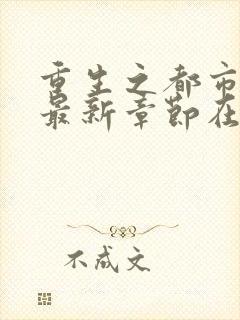 重生之都市
最新章节在
不成文